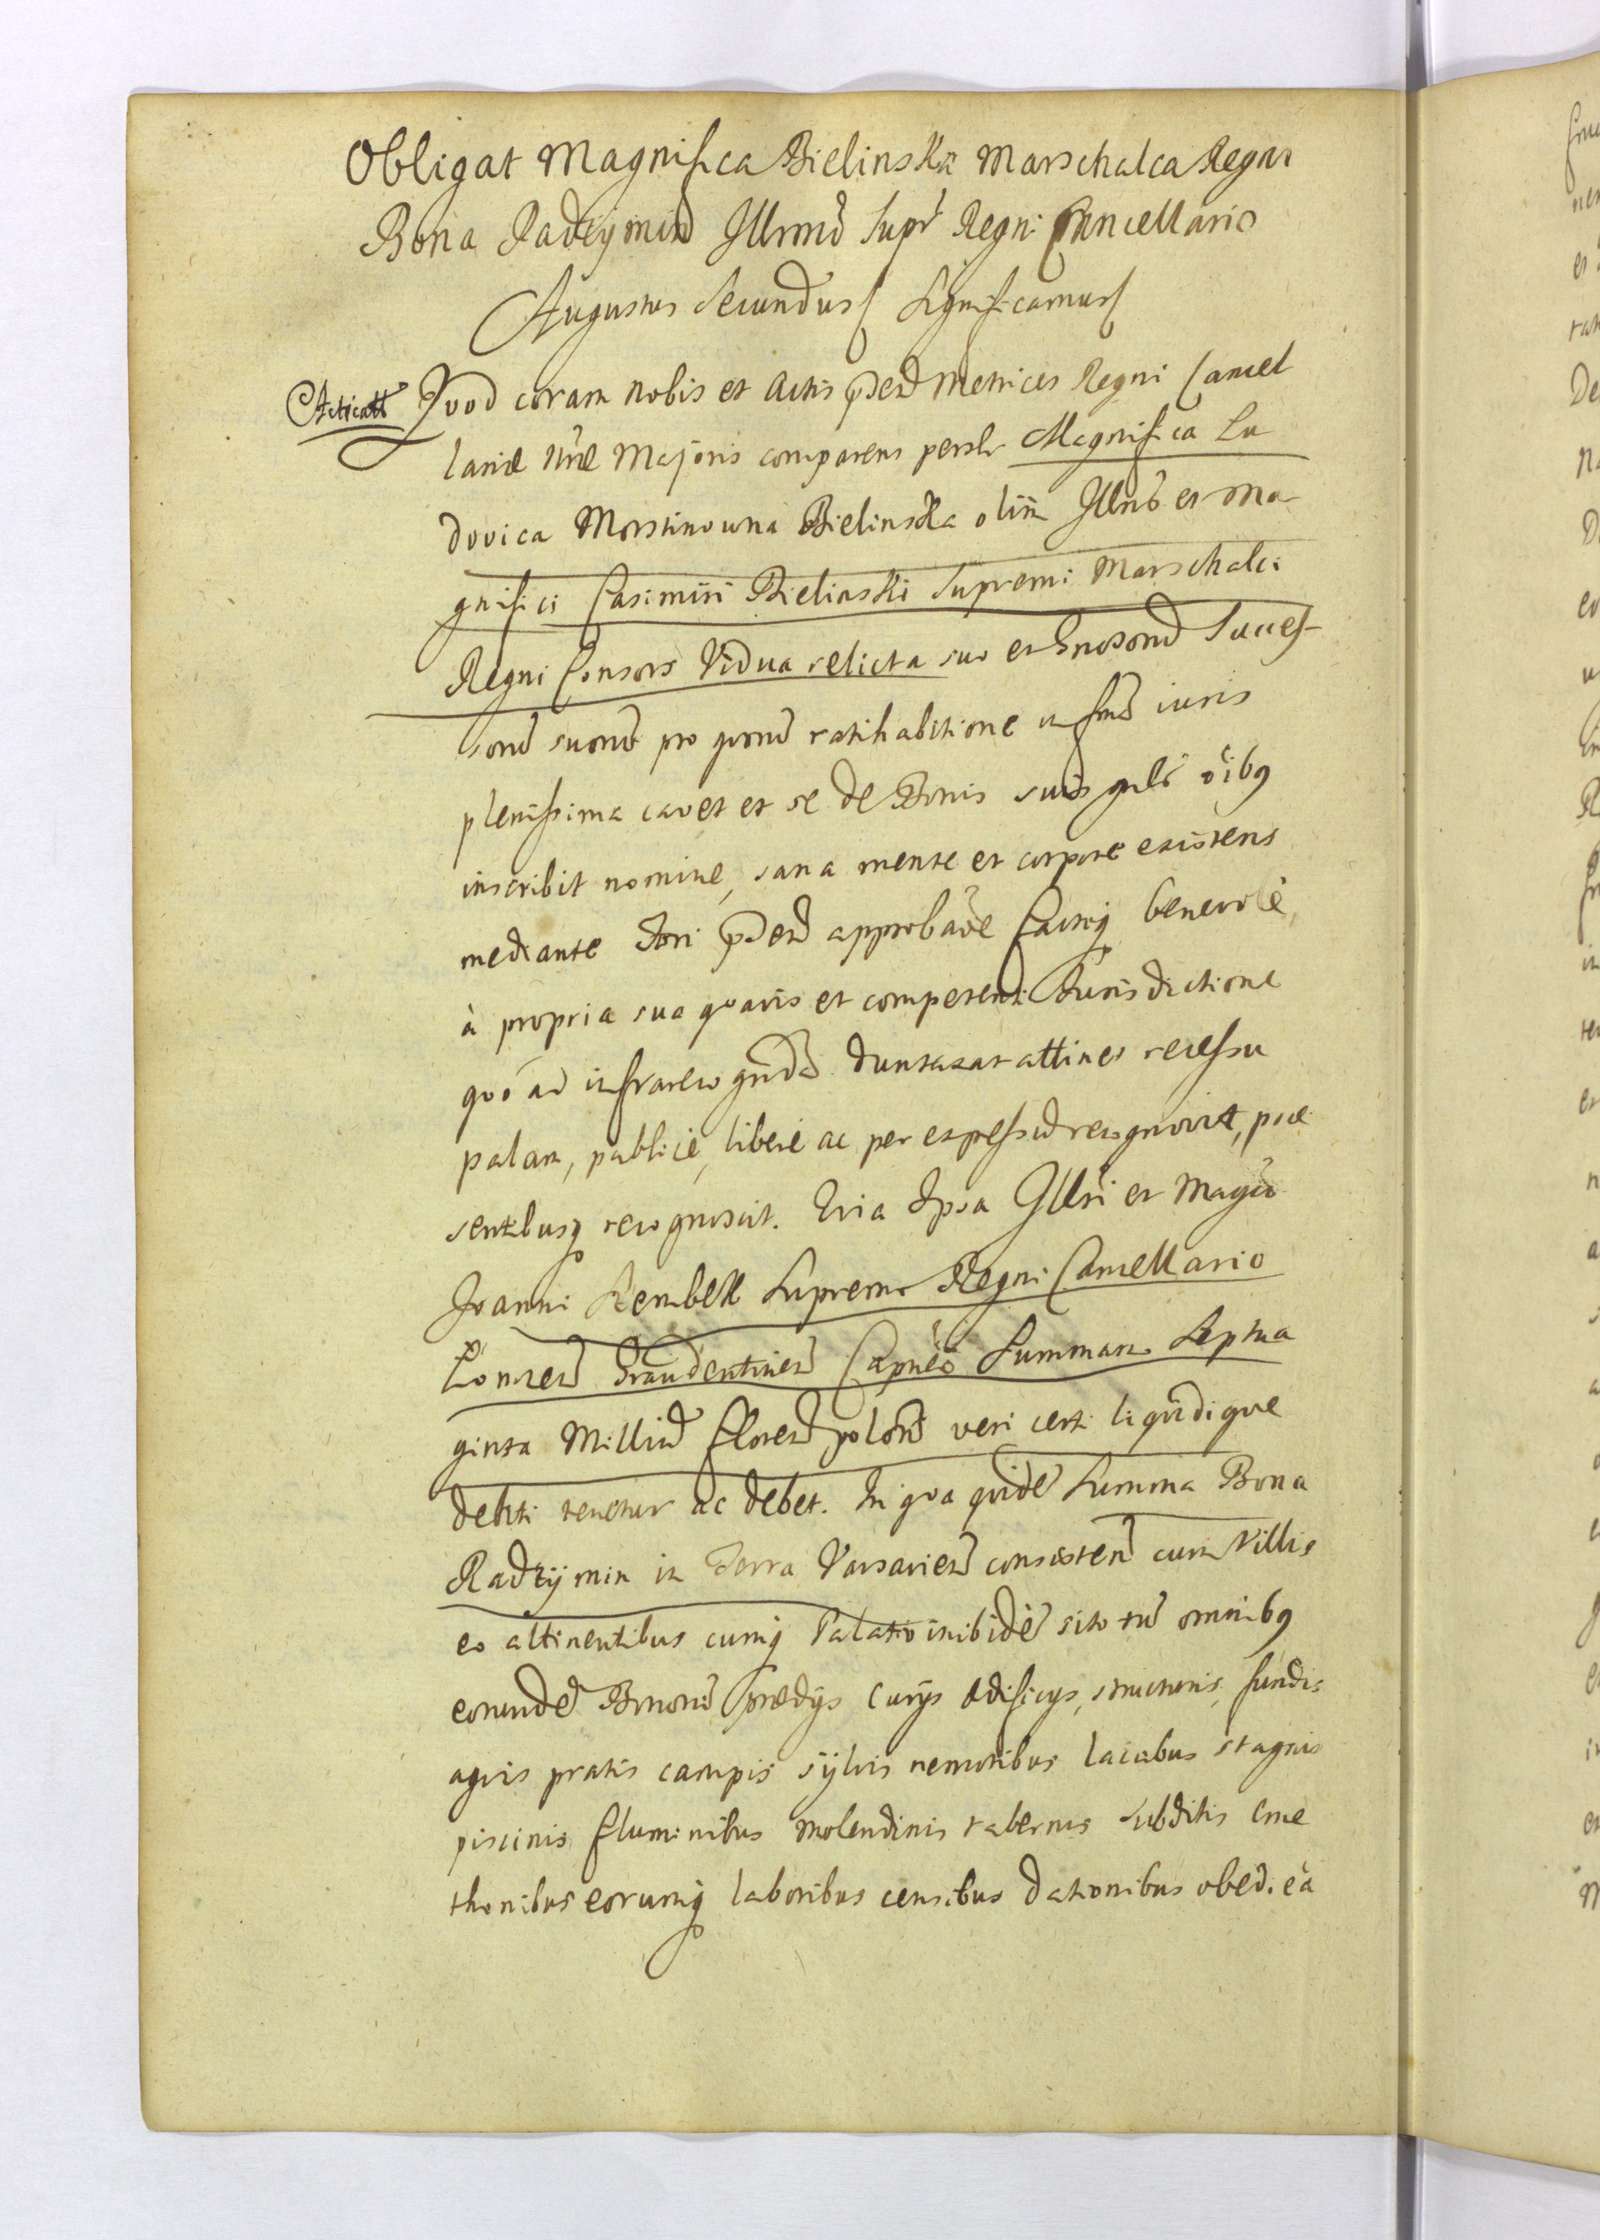 Obligat Magnifica Bielinska Marschalca Regni
Bona Radzymin Illrmo Supr Regni Cancellario
Augustus Secundus Significamus
Acticatt Quod coram nobis et Actis pnd Metrices Regni Cancel
lariæ Nræ Majoris comparens persl Magnifica Lu
dovica Morstinowna Bielinska olim Illris et Ma
gnifici Casimiri Bielinski Supremi Marschalci
Regni Consors Vidua relicta suo et Successf
sorū suorū pro quorū ratihabitione in formā iuris
plenissima cavet et se de Bonis suis oibg
inscribit nomine, sana mente et corpore existens
mediante Jori approbāe benevolè
à propria sua quavis et competenti Jurisdictione
quo ad infrarecognda duntaxat attinet recessu
palam, publicè, liberè ac per expressū recognovit, præ
sentibusq recognoscit. Qvia Ipsa Illri et Magco
Joanni Szembek Supremo Regni Cancellario
Graudentinen Capneo Summam Septua
ginta Milliū Floren polon veri certi liqvidiqve
debiti tenetur ac debet. In qva qvidē Summa Bona
Radzÿmin in Terra Varsavien consisten cum Villis
eo attinentibus cumq Palatio inibidē sito tū omnibg
eorundē Bonorū prædijs curijs ædificijs, structuris, fundis
agris pratis campis sÿlvis nemoribus lacubus stagnis
piscinis fluminibus molendinis tabernis subditis Cme
thonibus eorumq laboribus censibus dationibus obediēa